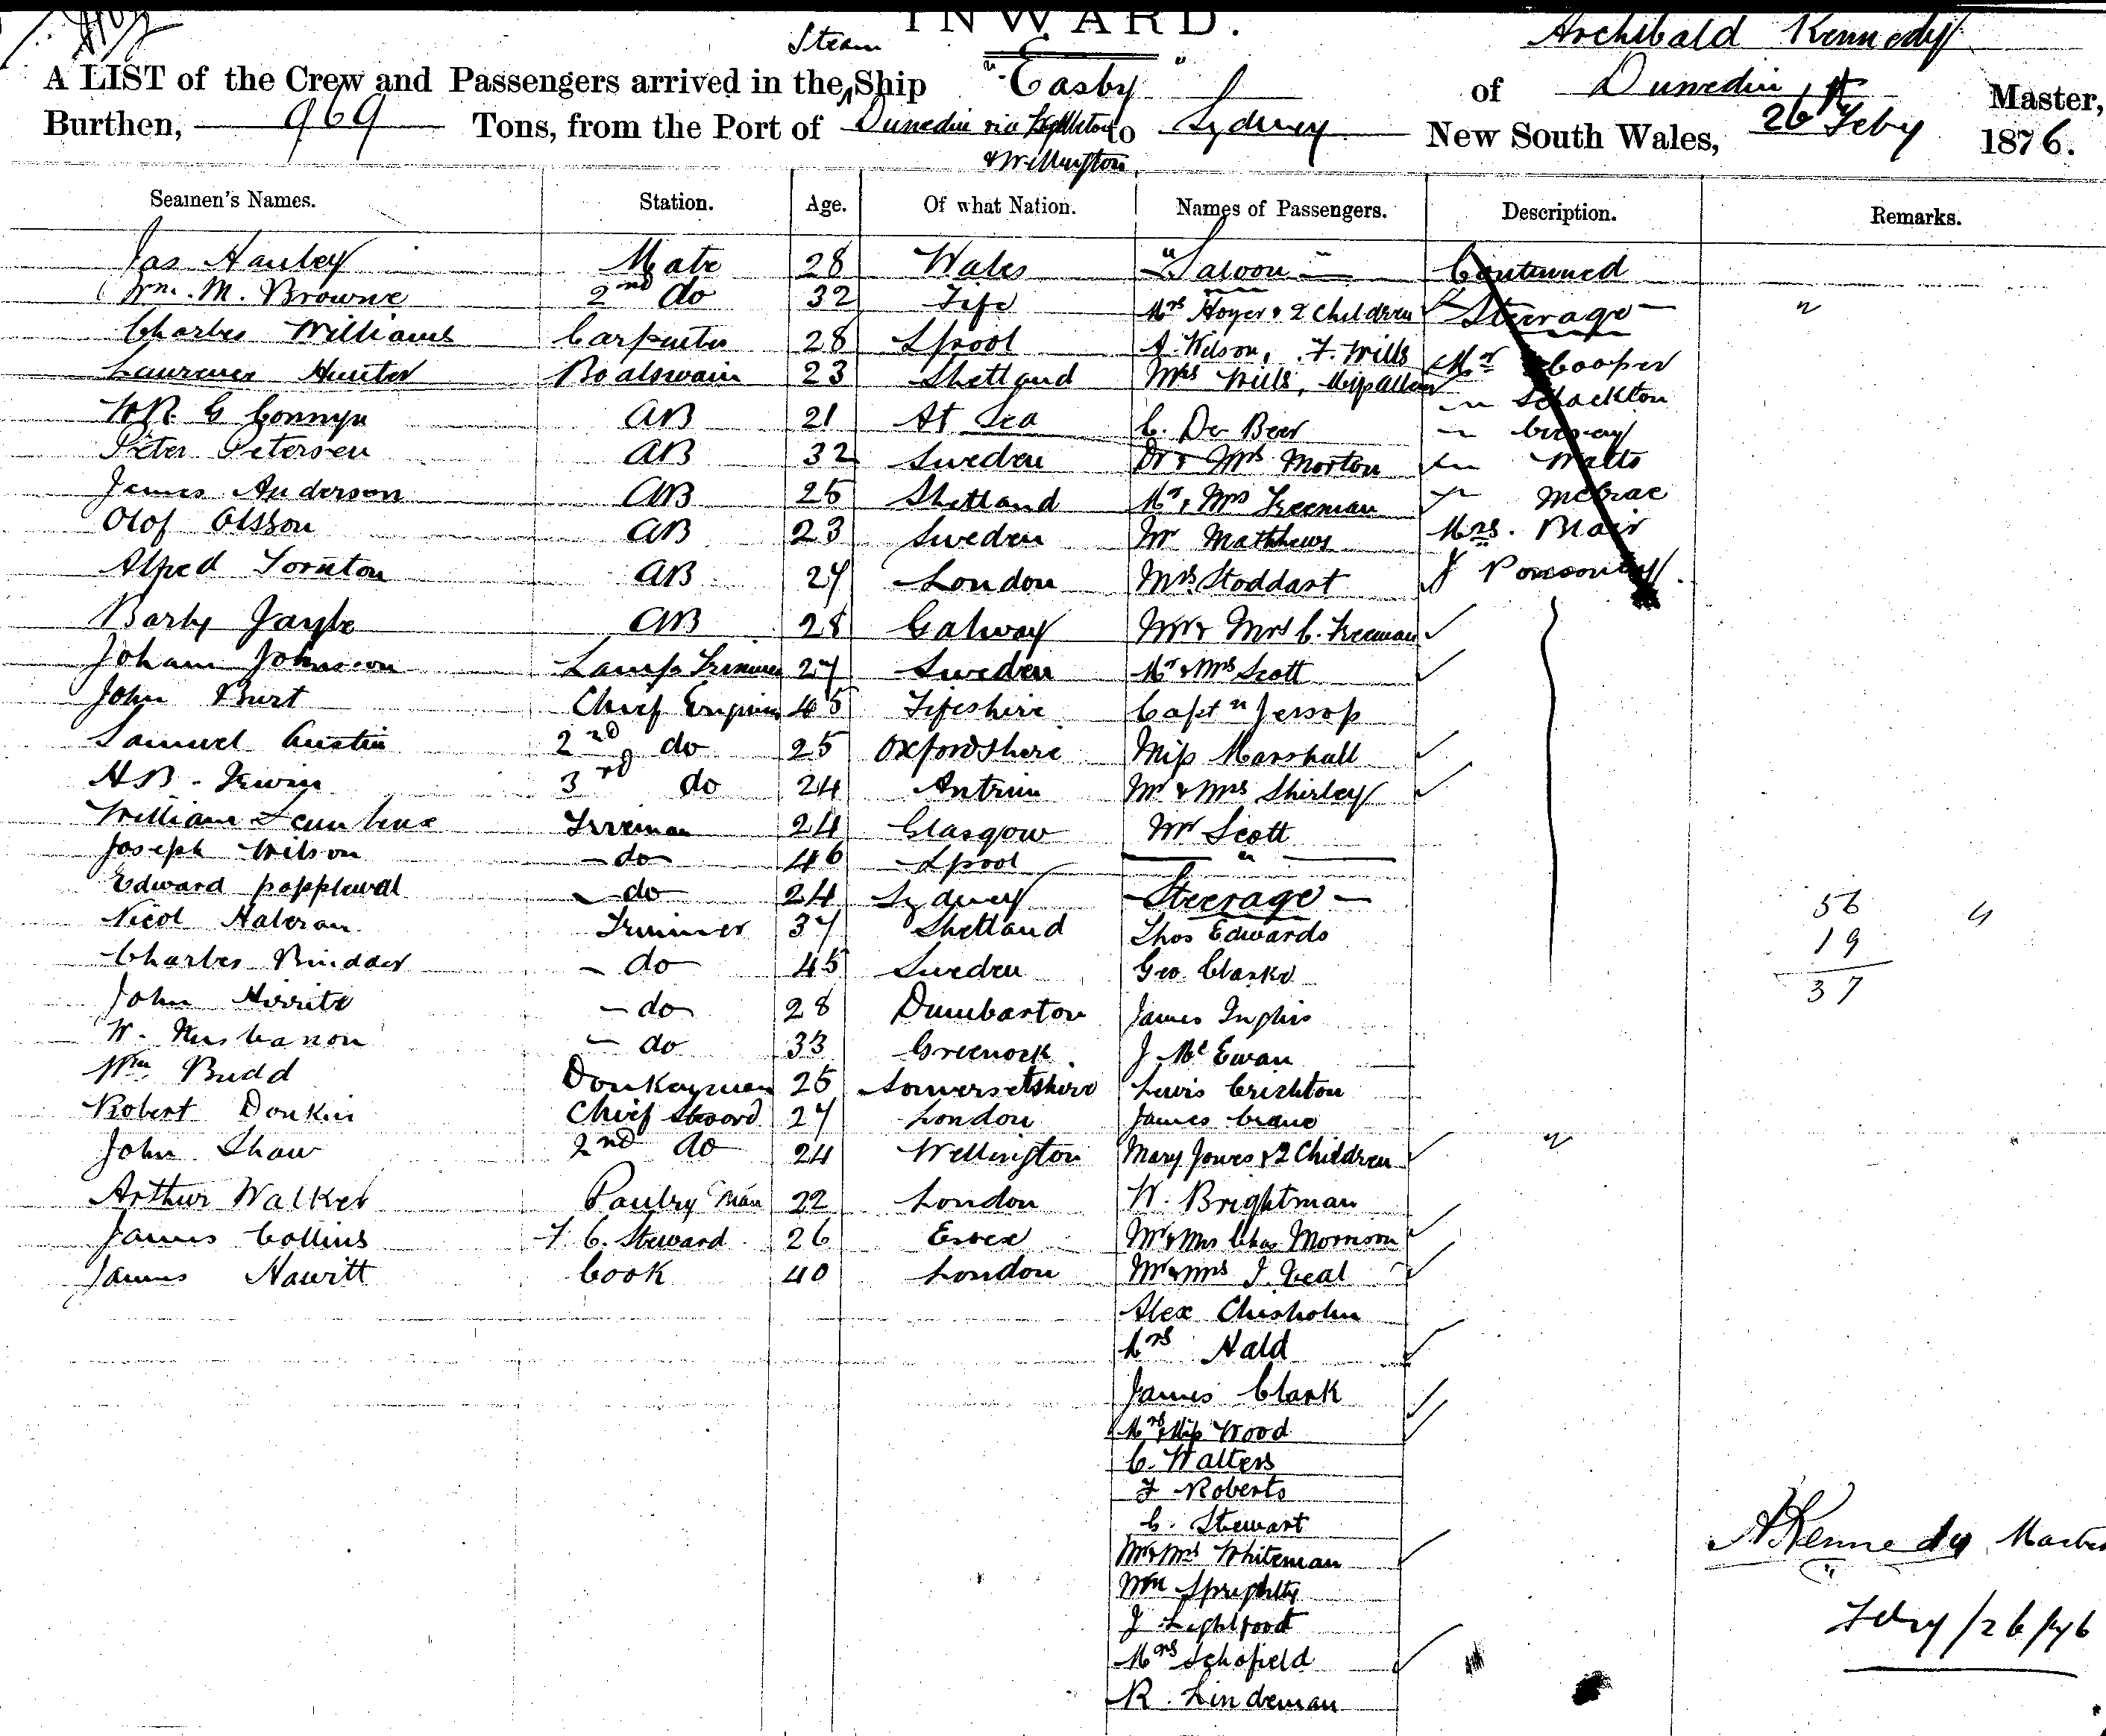 INWARD.
Archibald Kennedy
Steam
A LIST of the Crew and Passengers arrived in the Ship "Easby" of Dunedin Master,
Burthen, 969 Tons, from the Port of Dunedin via Lyttleton to Sydney New South Wales, 26th Feby 1876.
& Wellington
Seamen's Names. Station. Age. Of what Nation. Names of Passengers. Description. Remarks.
Jas Mate 28 Wales "Saloon" Continued
Wm. M. Browne 2nd do 32 Fife Mrs Hoyer & 2 Children Steerage "
Charles Williams Carpenter 28 Lpool A. Wilson, F. Wills Mr Cooper
Laurence Hunter Boatswain 23 Shetland Mrs Wills, Miss Allen " Schacklton
G AB 21 At Sea C. De Beer "
Peter Petersen AB 32 Sweden Dr & Mrs Morton " Watts
James Anderson AB 25 Shetland Mr & Mrs Freeman " McCrae
Olof Olsson AB 23 Sweden Mr Matthews Mrs. Blair
Alfred Tornton AB 27 London Mrs Stoddart J Ponsonby
Barty AB 28 Galway Mr & Mrs C. Freeman
Johann Johnsson Lamp Trimmer 27 Sweden Mr & Mrs Scott
John Burt Chief Engineer 45 Fifeshire Captn Jessop
Samuel Austin 2nd do 25 Oxfordshire Miss Marshall
H B. Irwin 3rd do 24 Antrim Mr & Mrs Shirley
William Fireman 24 Glasgow Mr Scott
Joseph Wilson do 46 Lpool "
Edward Popplewal do 24 Sydney Steerage
Nicol Halcran Trimmer 37 Shetland Thos Edwards 56
Charles do 45 Sweden Geo. Clarke 19
John do 28 Dumbarton James Inglis 37
W. do 33 Greenock J McEwan
Wm Budd Donkeyman 25 Somersetshire Lewis Crichton
Robert Donkin Chief Steward 27 London James Crane
John Shaw 2nd do 24 Wellington Mary Jones & 2 Children "
Arthur Walker Pantry Man 22 London W. Brightman
James Collins F. C. Steward 26 Essex Mr & Mrs Chas Morrison
James Hawitt Cook 40 London Mr & Mrs J. Veal
Alex Chisholm
Mrs Hald
James Clark
Mrs & Miss Wood
C. Walters
F Roberts
C. Stewart
Mr & Mrs Whiteman
A Kennedy Master
Wm Sprightly
J Lightfoot
Feby/26/76
Mrs Schofield
R. Lindeman